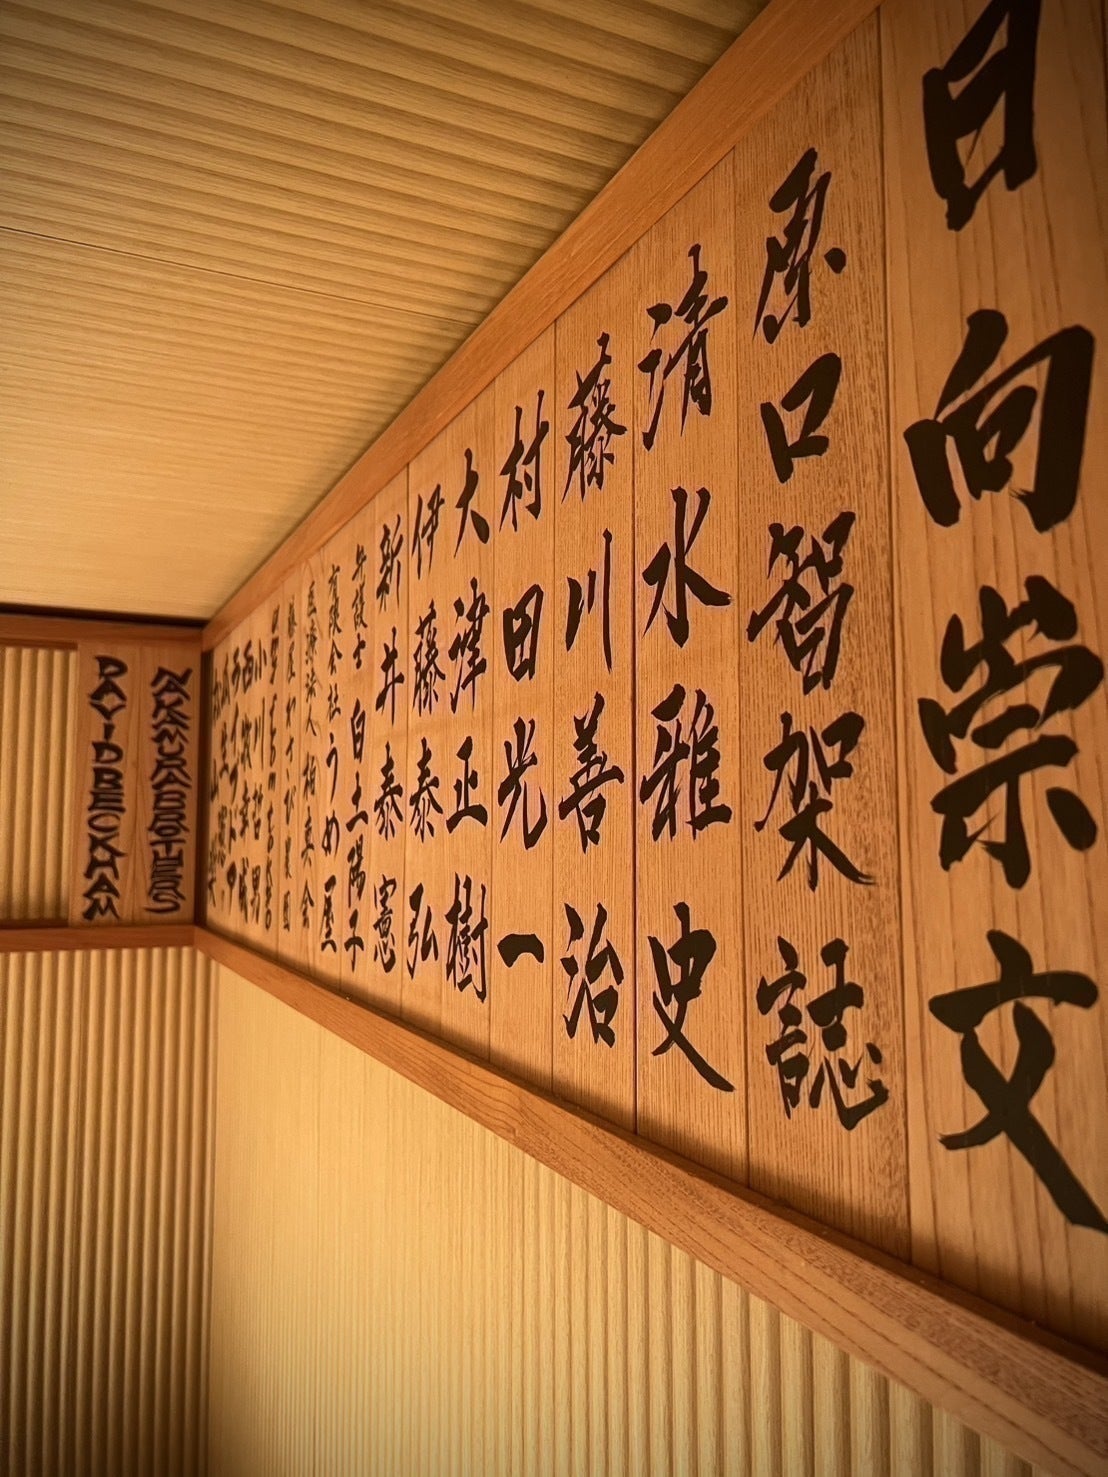 日向崇文
原口智架誌
清水雅史
藤川善治
村田光一
大津正樹
伊藤泰弘
新井泰憲
弁護士 白土陽子
有限会社うめ屋
小川哲男
NAKAMURA BROTHERS
DAVID BECKHAM